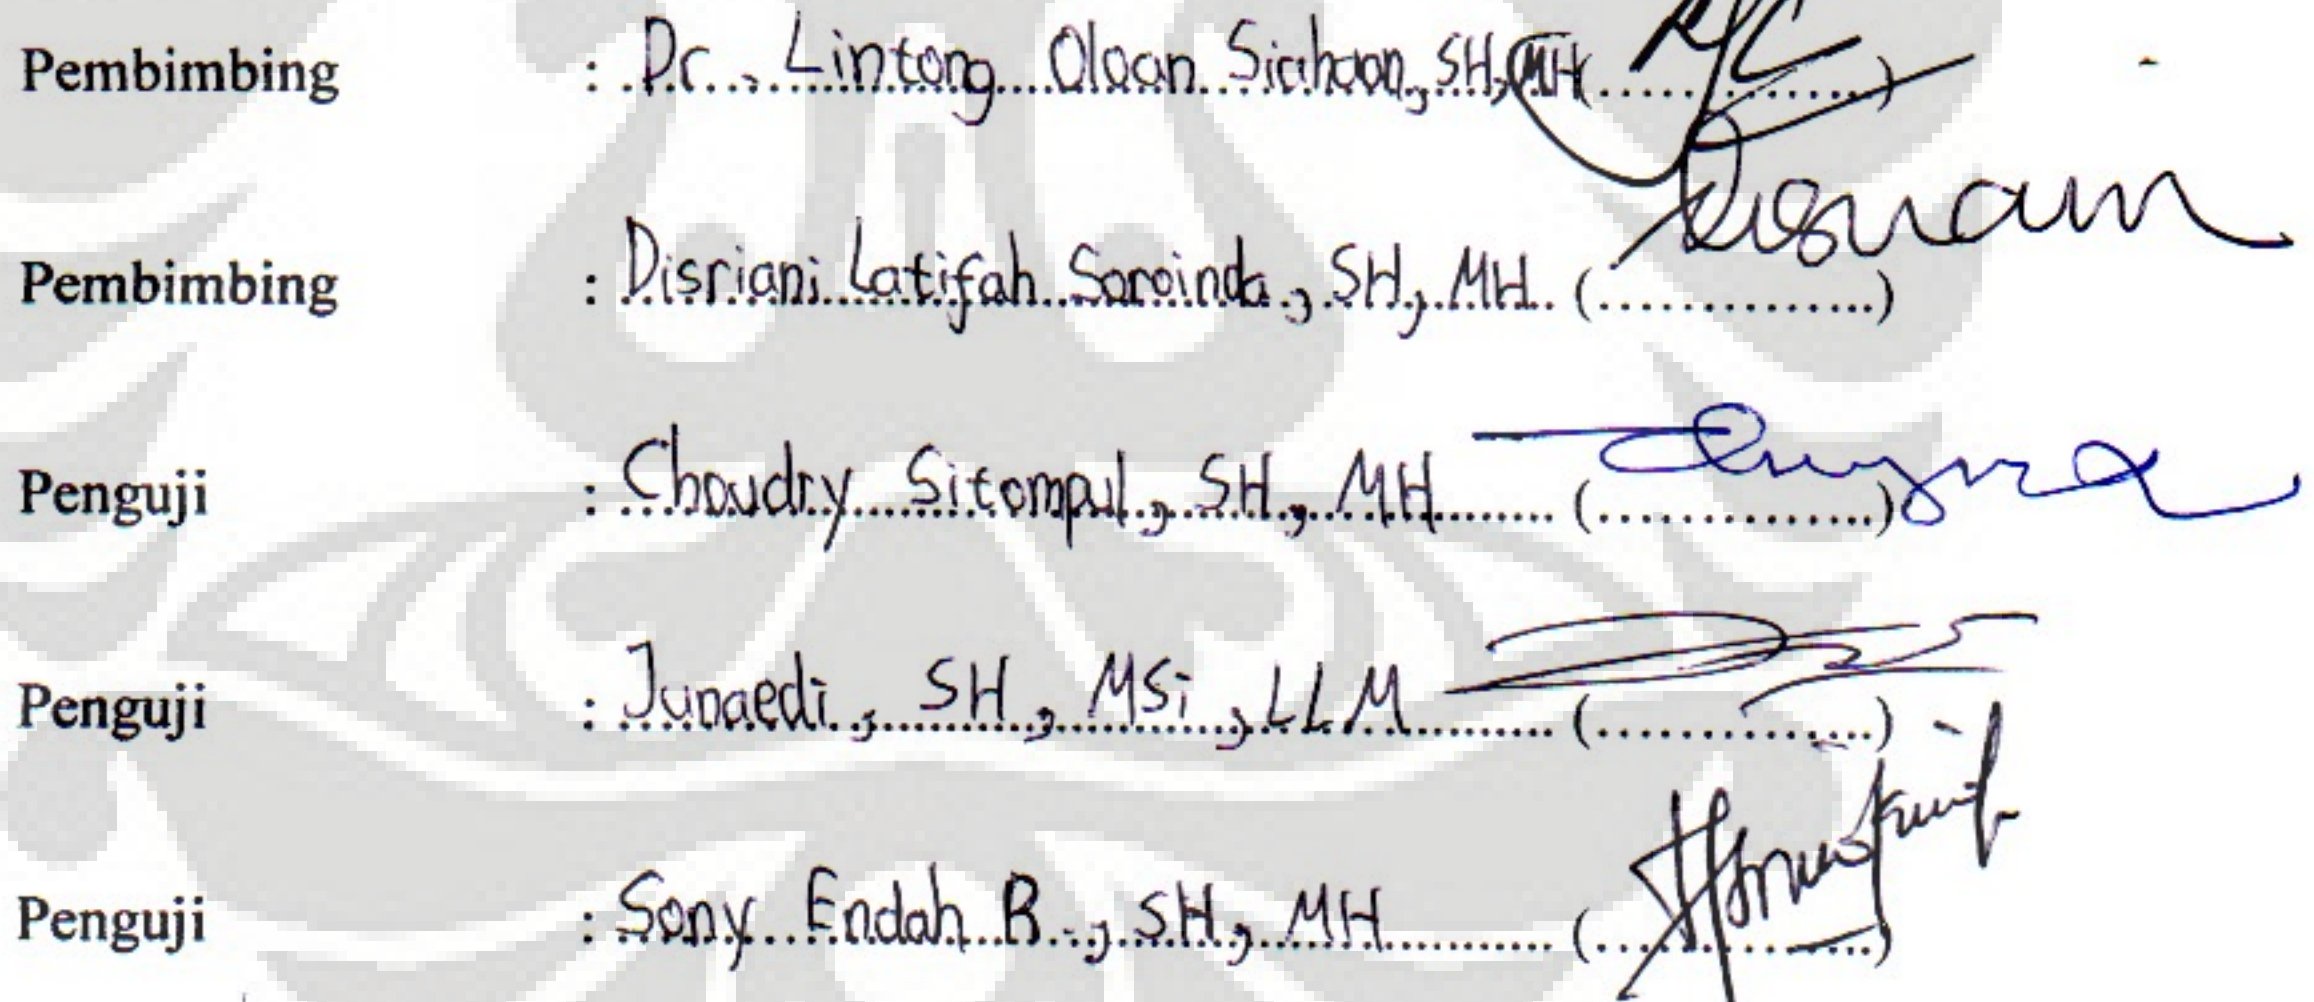 Pembimbing : Dr. Lintong Oloan Siahaan, SH, MH (..............)
Pembimbing : Disriani Latifah Soroinda, SH, MH (..............)
Penguji : Choudry Sitompul, SH, MH (..............)
Penguji : Junaedi, SH, MSi, LLM (..............)
Penguji : Sony Endah B., SH, MH (..............)